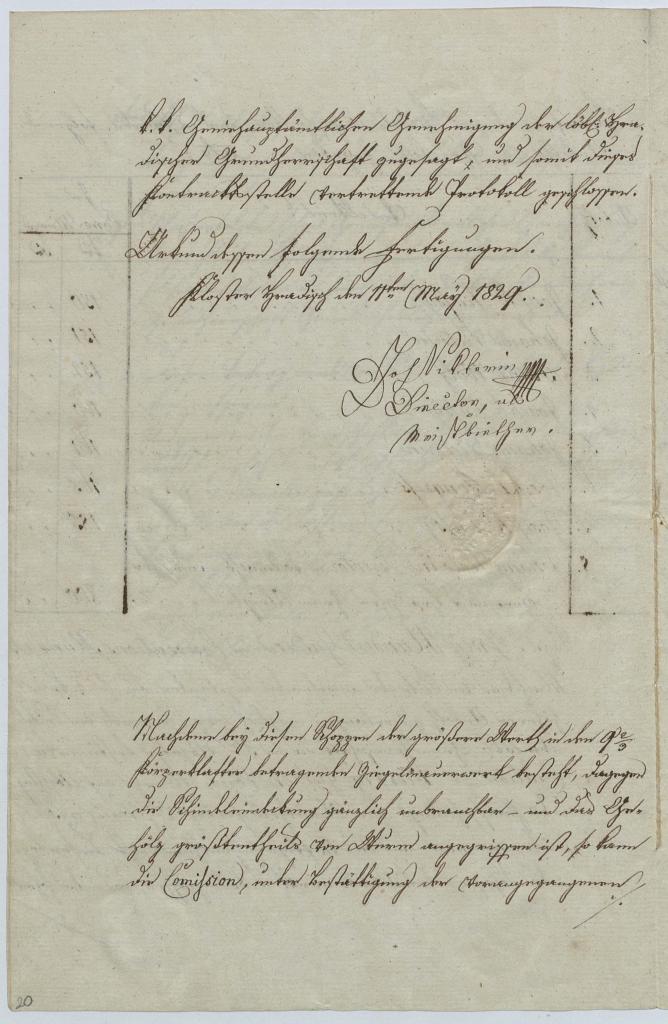 k. k. Geniehauptämtlichen Genehmigung der löbl: Hra-
discher Grundherrschaft zugesagt, und somit dieses
Kontracktsstelle vertrettende Protokoll geschlossen.
Urkund dessen folgende Fertigungen.
Kloster Hradisch den 11ten May 1829.
Joh Viktorin
Director, als
Meistbiether.
Nachdeme bey diesen Schoppen der größere Werth in den 9 2/3
Körperklafter betragende Ziegelmauerwerk besteht, dagegen
die Schindleindekung gänzlich unbrauchbar – und das Ge-
hölz größtentheils von Wurm angegriffen ist, so kann
die Comission, unter Bestättigung der vorangegangenen
./.
20